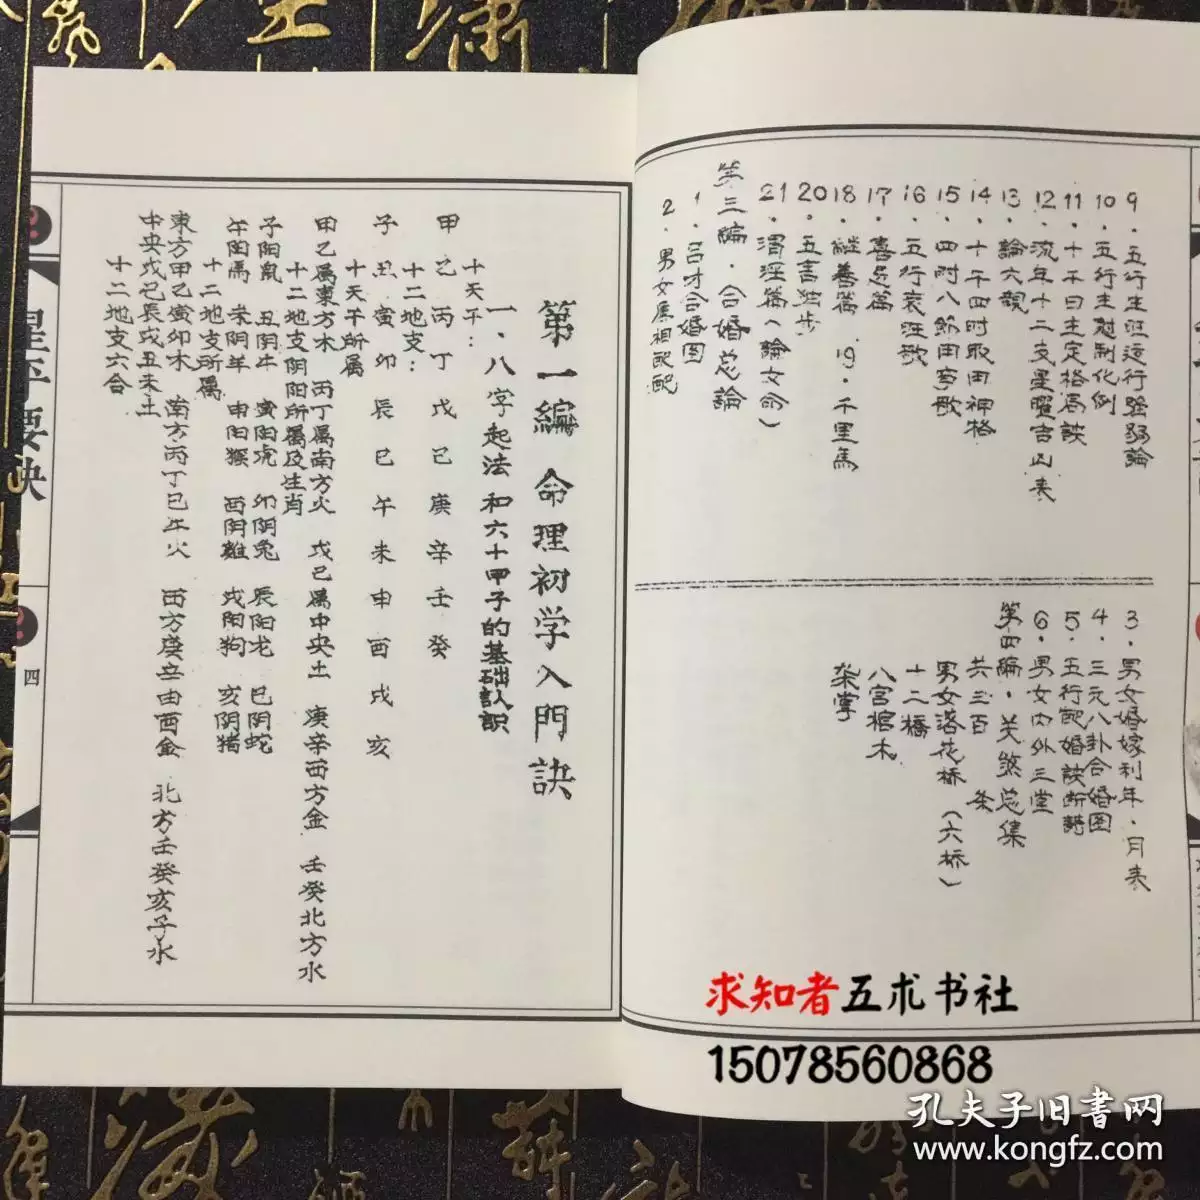 9．五行生旺运行强弱論
10．五行生尅制化例
11．十干日主定格局訣
12．流年十二支星曜吉凶表
13．論六親
14．十干四时取用神格
15．四时八節用事歌
16．五行衰旺歌
17．喜忌篇
18．継善篇 19．千里馬
20．五言独步
21．渭泾篇（論女命）
第三編．合婚总論
1．吕才合婚图
2．男女属相配配
3．男女婚嫁利年．月表
4．三元八卦合婚图
5．五行配婚訣断詩
6．男女内外三堂
第四編．关煞总集
共三百 条
男女落花桥（六桥）
十二橋
八宫棺木
架掌
第一編 命理初学入門訣
一．八字起法和六十甲子的基础认識
十天干：
甲乙丙丁戊己庚辛壬癸
十二地支：
子丑寅卯辰巳午未申酉戌亥
十天干所属
甲乙属東方木 丙丁属南方火 戊己属中央土 庚辛西方金 壬癸北方水
十二地支阴阳所属及生肖
子阳鼠 丑阴牛 寅阳虎 卯阴兔 辰阳龙 巳阴蛇
午阳馬 未阴羊 申阳猴 酉阴雞 戌阳狗 亥阴猪
十二地支所属
東方甲乙寅卯木 南方丙丁巳午火 西方庚辛申酉金 北方壬癸亥子水
中央戊己辰戌丑未土
十二地支六合
星平要訣
四
求知者五术书社
15078560868
孔夫子旧書网
www.kongfz.com